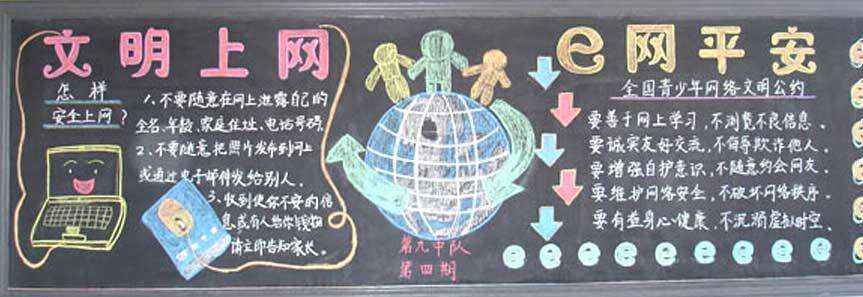 文明上网
怎样
安全上网?
1、不要随意在网上泄露自己的
全名、年龄、家庭住址、电话号码。
2、不要随意把照片发布到网上
或通过电子邮件发给别人。
3、收到使你不安的信
息或有人给你钱物
请立即告知家长。
第九中队
第四期
e网平安
全国青少年网络文明公约
要善于网上学习,不浏览不良信息。
要诚实友好交流,不侮辱欺诈他人。
要增强自护意识,不随意约会网友。
要维护网络安全,不破坏网络秩序。
要有益身心健康,不沉溺虚拟时空。
e e e e e e e e e e